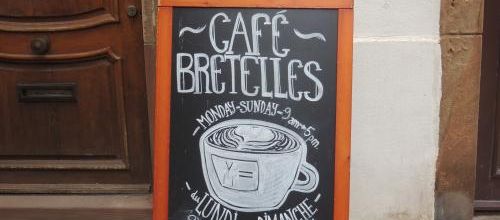 ~ CAFÉ ~
BRETELLES
~MONDAY-SUNDAY-9am→5pm~
Y=
du LUNDI DIMANCHE